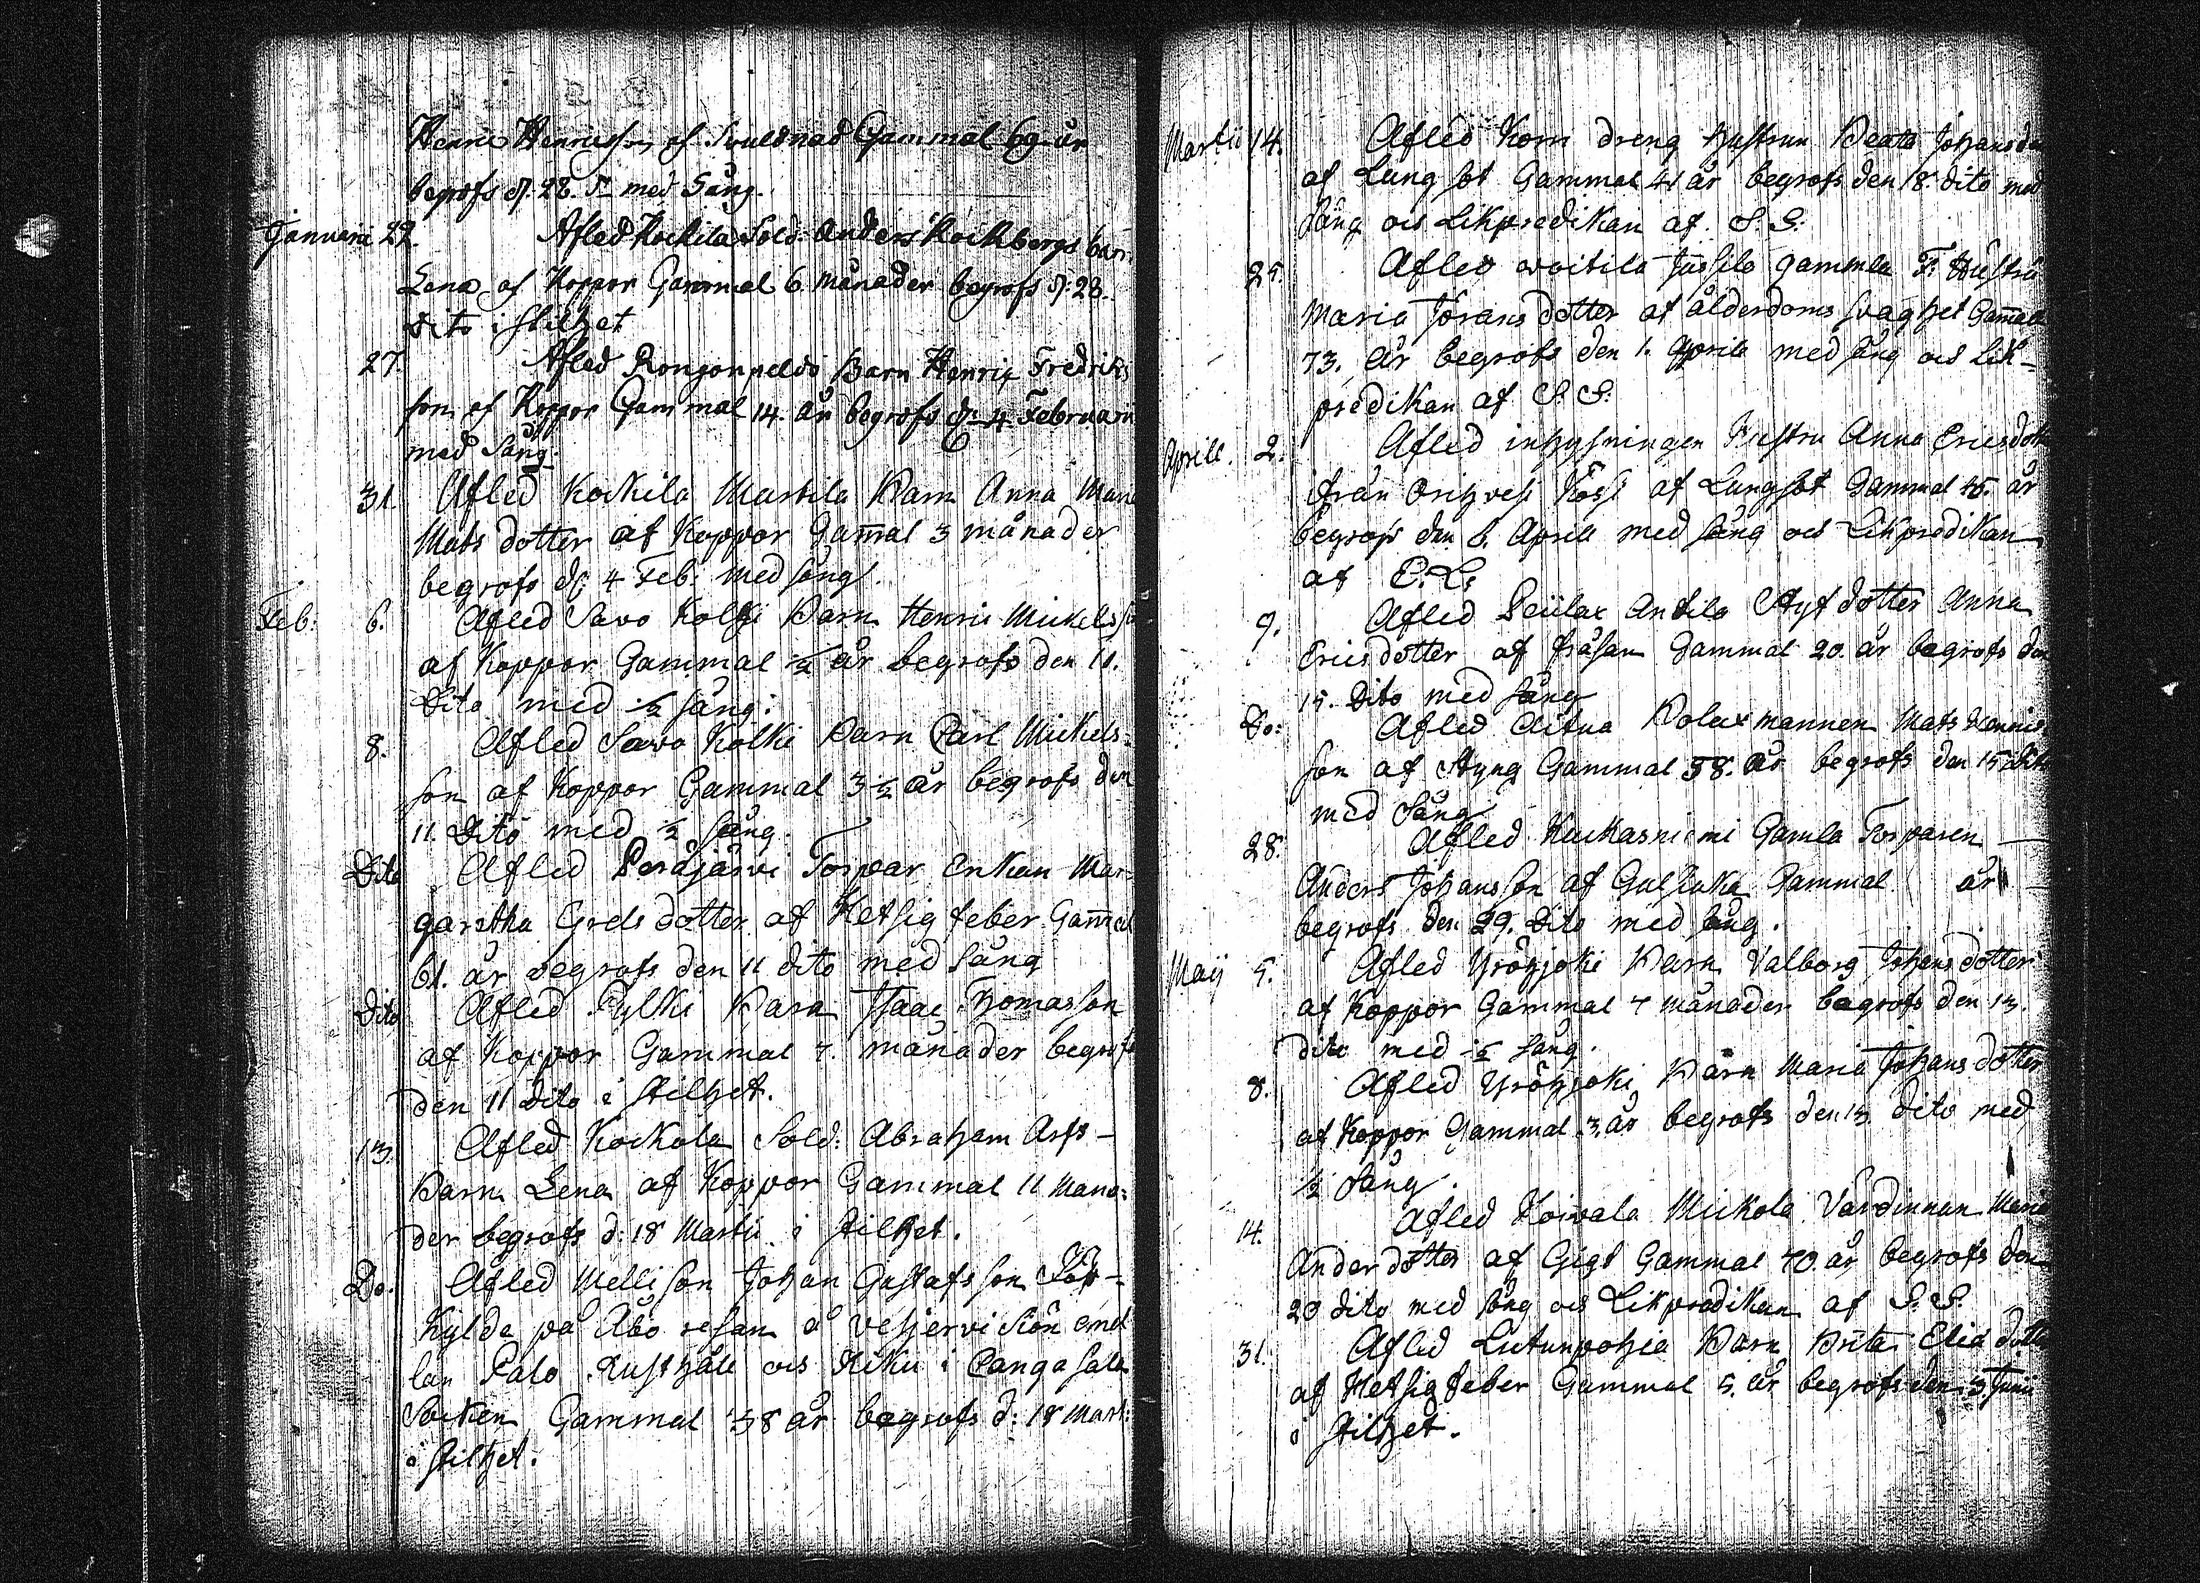 Henric Henricsson af Gammal 69 år
begrofs d: 28. med Sång.
Januarii 22. Afled Kockila Sold: Anders Kockbergs barn
Lena af Koppor Gammal 6. månader begrofs d: 28.
Dito i stilhet
27. Afled Barn Henrix Fredriks
son af Koppor Gammal 14. år begrofs d. 4 Februarii
med Sång.
31. Afled Kockila Martila Barn Anna Maria
Mats dotter af Koppor Gam̄al 3 månader
begrofs d: 4 Feb: med sång.
Feb: 6. Afled Savo Kolki Barn Henric Mickelsson
af Koppor Gammal ½ år begrofs den 11.
Dito med ½ sång.
8. Afled Savo Kolki Barn Carl Mickels-
son af Koppor Gammal 3 ½ år begrofs den
11. Dito med ½ sång.
Dito Afled Peräjärvi Torpar Enkan Mar-
garetha Grels dotter af Hetsig feber Gam̄al
61. år begrofs den 11 dito med Sång
Dito Afled Fylki Barn Isaac Thomasson
af Koppor Gammal 7. månader begrofs
den 11 Dito i stilhet.
13. Afled Kockala Sold: Abraham Arfs-
Barn Lena af Koppor Gammal 11 Måna-
der begrofs d: 18 Martii i stilhet.
Do. Afled Mellison Johan Gustafsson För-
kylde på Åbo resan å Vesjervi Siön emel
lan Palo Rusthåll och Kiku i Cangasala
Socken Gammal 38 år begrofs d: 18 Mart:
i stilhet.
Martii 14. Afled Korn dreng Hustrun Beata Johansdr
af Lungsot Gammal 41 år begrofs den 18. dito med
Sång och Likpredikan af S. S.
25. Afled Woitila Jussila gammla F. Hustru
Maria Jörans dotter af ålderdoms svaghet Gam̄al
73. år begrofs den 1. Aprill med sång och Lik-
predikan af S. S.
Aprill. 2. Afled inhysningen Hustru Anna Ericsdott
ifrån Orihvesi af Lungsot Gammal 45. år
begrofs den 6. Aprill med sång och Likpredikan
af E. L.
9. Afled Antila Styf dotter Anna
Ericsdotter af fråsan Gammal 20. år begrofs den
15. Dito med sång
Do: Afled Aitna Bolaxmannen Mats Henrics
son af Styng Gammal 58. år begrofs den 15 dito
med Sång
28. Afled Kuckasniemi Gamla Torparen
Anders Johansson af Gulsiuka Gammal år
begrofs den 29. Dito med sång.
Maij 5. Afled Yröhjoki Barn Valborg Johansdotter
af Koppor Gammal 7 månader begrofs den 13.
dito med ½ sång.
8. Afled Yröhjoki Barn Maria Johans dotter
af Koppor Gammal 3. år begrofs den 13. dito med
½ Sång.
14. Afled Koivala Mickola Värdinnan Maria
Anderdotter af Gigt Gammal 70. år begrofs den
20 dito med sång och Likpredikan af S. S.
31. Afled Lietunpohia Barn Brita Elia dotter
af Hetsig feber Gammal 5. år begrofs den 3. Junii
i stilhet.